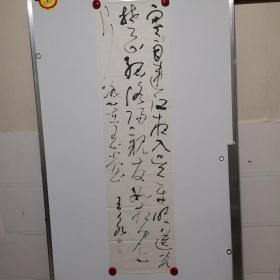 寒雨連江夜入吴平明送客
楚山孤洛陽親友如相问一
片冰心在玉壶